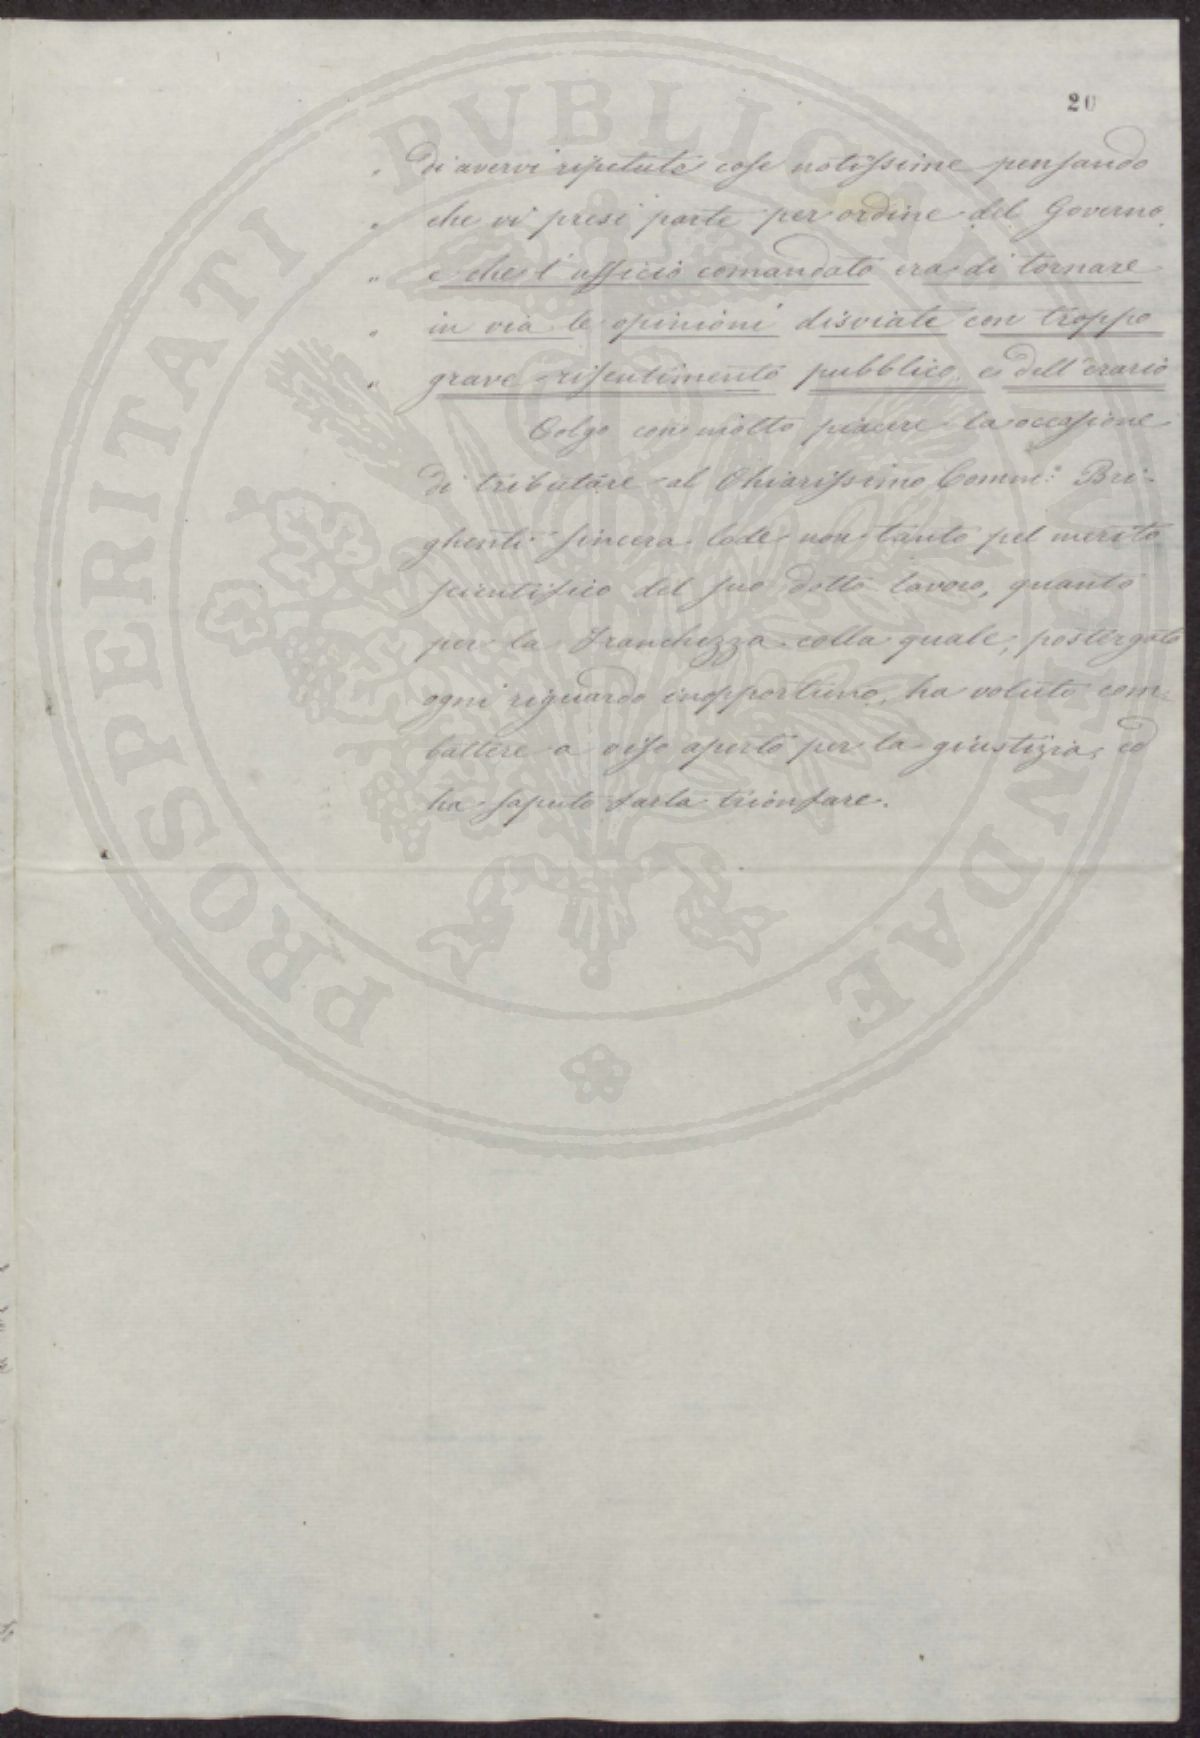 20
" di avervi ripetuto cose notissime pensando
" che vi presi parte per ordine del Governo,
" e che l'ufficio comandato era di tornare
" in via le opinioni disviate con troppo
" grave risentimento pubblico, e dell'erario
Colgo con molto piacere la occasione
di tributare al Chiarissimo Comm.e Bri-
ghenti sincera lode non tanto pel merito
scientifico del suo dotto lavoro, quanto
per la franchezza colla quale, postergato
ogni riguardo inopportuno, ha voluto com-
battere a viso aperto per la giustizia, ed
ha saputo farla trionfare.
PROSPERITATI PVBLICAE AVGENDAE